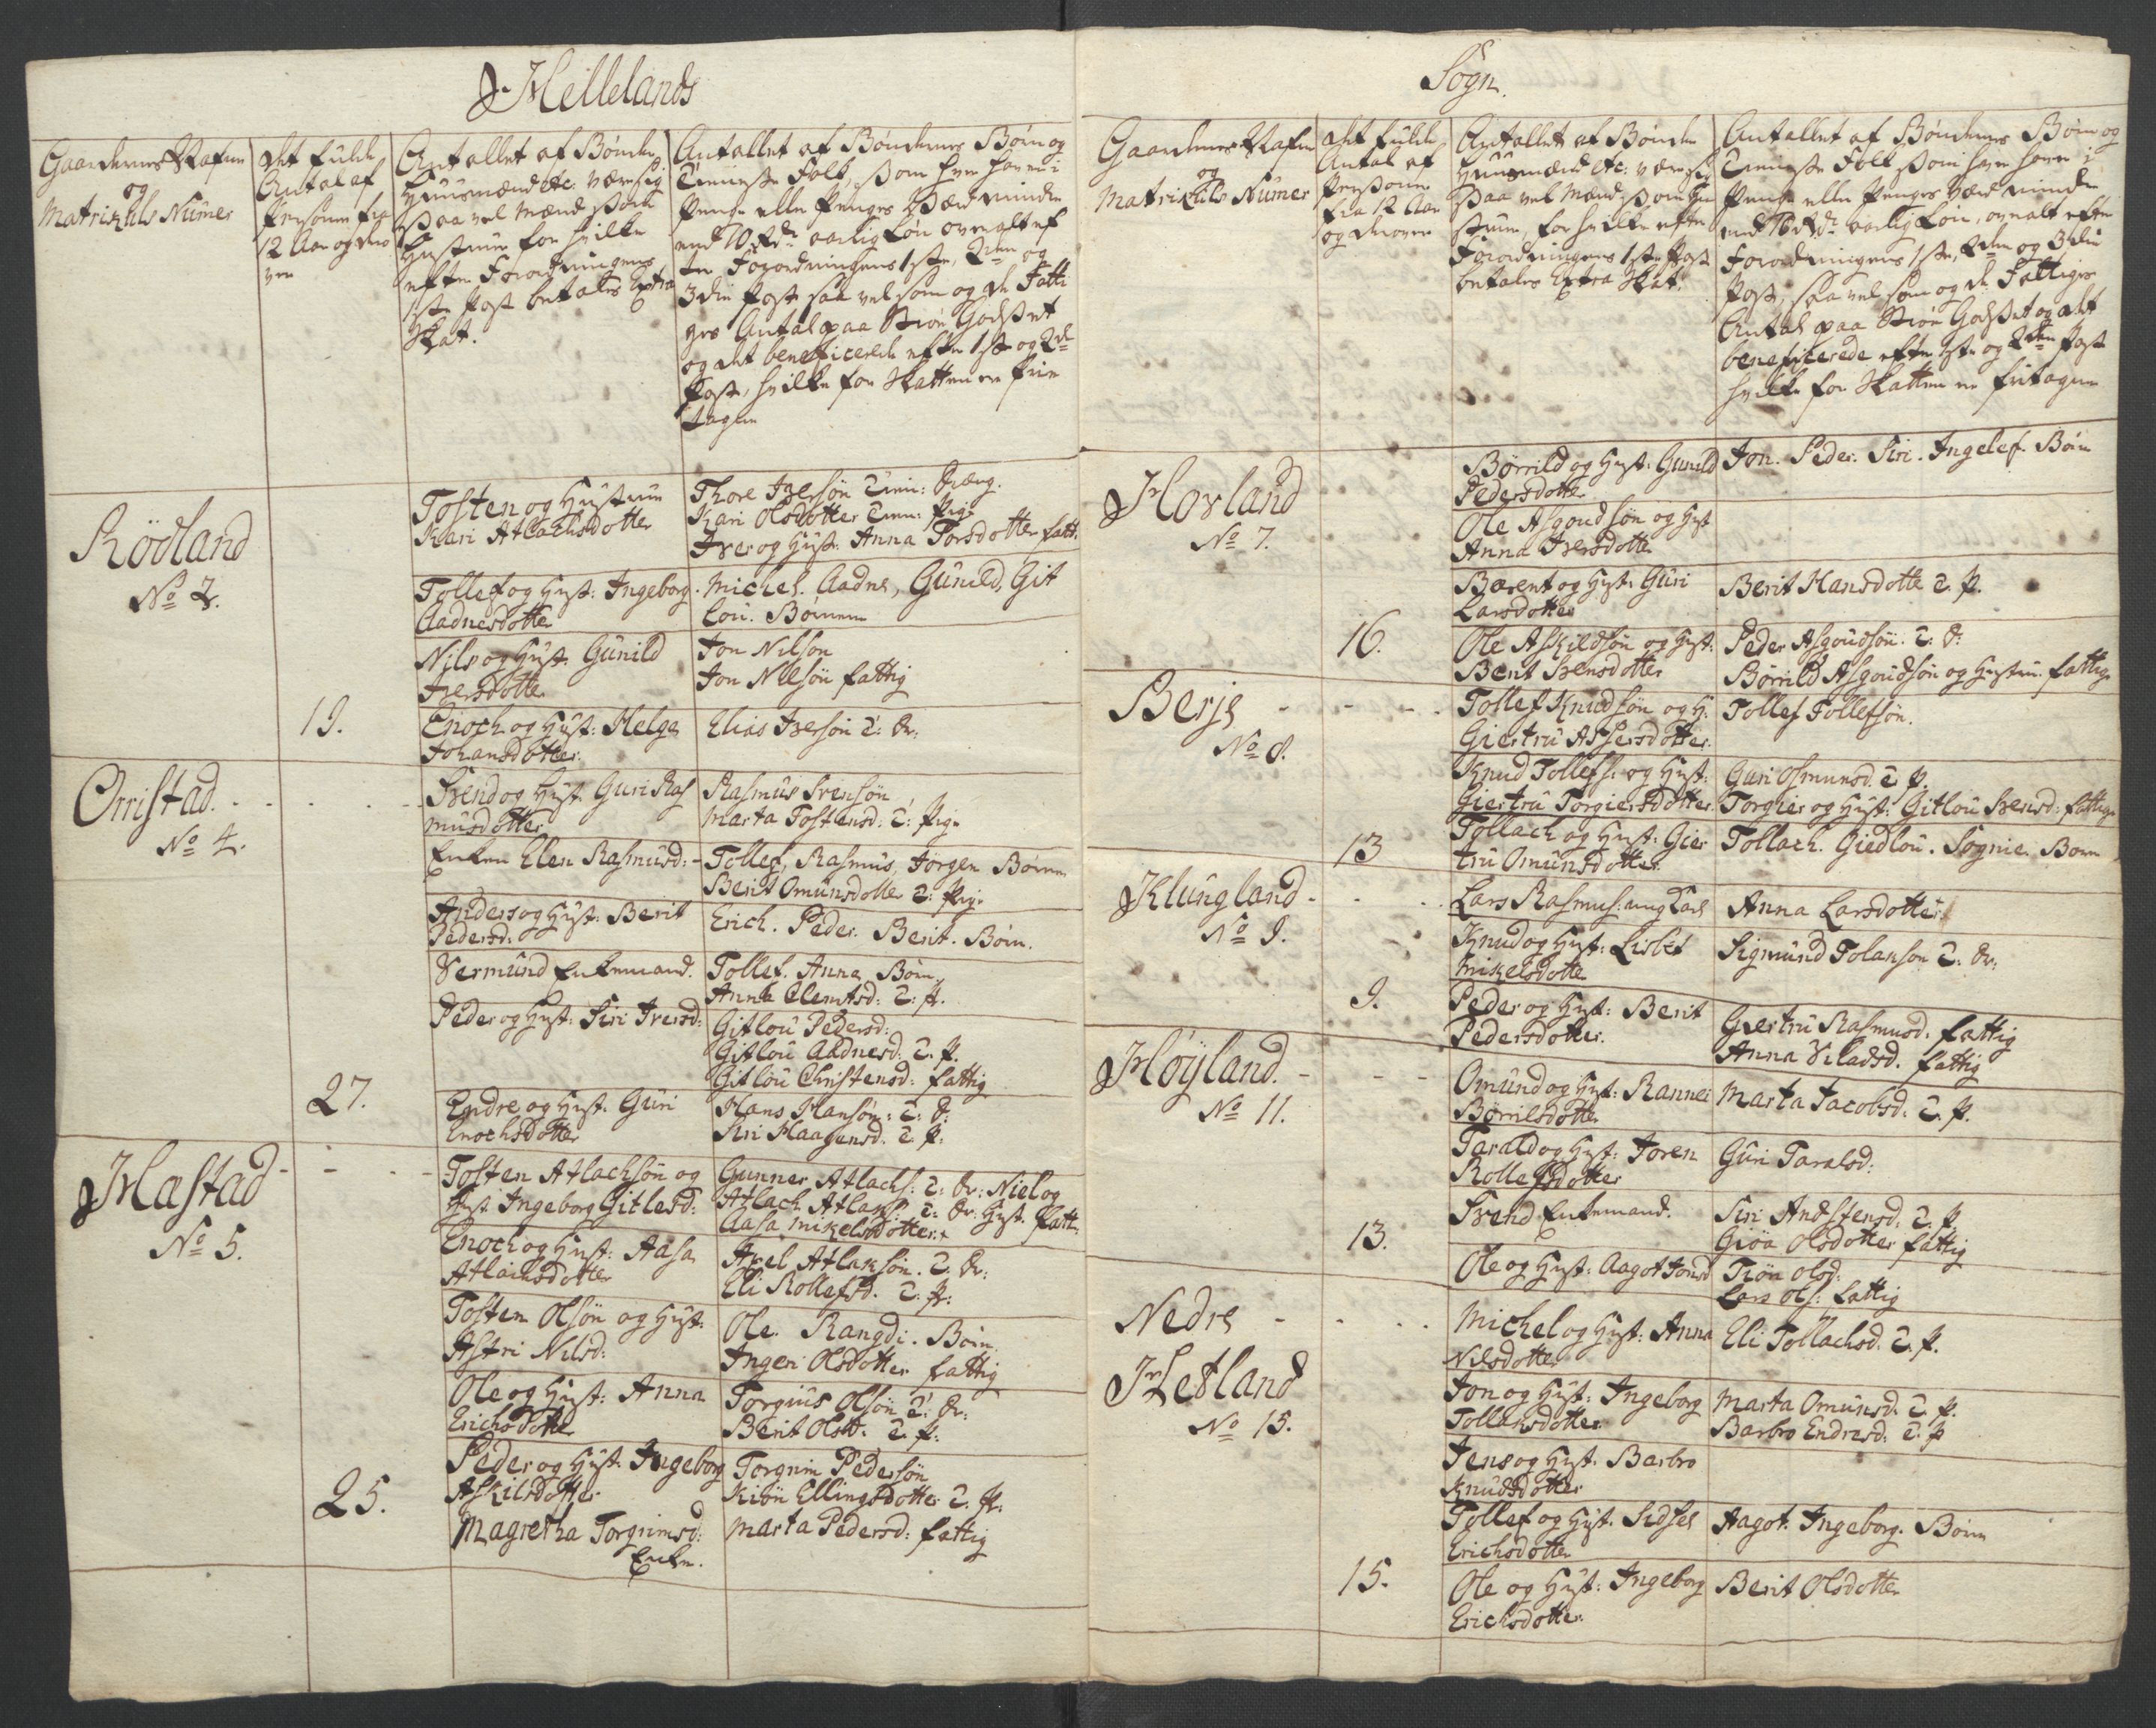 Hellelands
Gaardenes Nafne
og
Matrikuls Numer
Det fulde
Antal af
Personer fra
12 Aar og der o
ver
Antallet af Bønder
Huusmænd etc: være sig
saa vel Mænd som
Hustruer for hvilke
efter Forordningens
1ste Post betales Extra
Skat.
Antallet af Bøndernes Børn og
Tieneste Folk, som hver haver i
Penge eller Penges Værd minder
end 10 Rdr aarlig Løn overalt ef
ter Forordningens 1ste, 2den og
3die Post saa vel som og de Fatti
ges Antal paa Strøe Godset
og det beneficerede efter 1ste og 2den
Post, hvilke for Skatten er frie
tagen
Rödland
No 2.
19.
Tosten og Hustrue
Kari Atlachsdotter
Thore Iversön Tien: Dreng.
Kari Olsdotter Tien: Pige
Iver og Hust: Anna Torsdotter fatt:
Tollef og Hust: Ingeborg
Aadnesdotter
Michel. Aadne, Gunild, Git
lou. Börnene
Nils og Hust. Gunild
Iversdotter
Jon Nilsön
Jon Nilsön fattig
Enoch og Hust: Helge
Johansdotter.
Elias Iversön T: Dr:
Orristad.
No 4.
27.
Svend og Hust. Guri Ras
musdotter
Rasmus Svensön
Marta Tostensd: T: Pige
Enken Elen Rasmusd:
Tollef, Rasmus, Jorgen Börnene
Berit Omunsdotter T: Pige
Anders og Hust: Berit
Pedersd:
Erich. Peder. Berit. Börn.
Vermund Enkemand.
Tollef. Anna Börn
Anna Clemtsd: T: P.
Peder og Hust: Siri Iversd:
Gitlou Pedersd:
Gitlou Aadnesd: T. P.
Gitlou Christensd: fattig
Endre og Hust. Guri
Enochsdotter
Hans Hansön: T: D:
Siri Haagensd. T. P.
Hæstad
No 5.
25.
Tosten Atlachsön og
Hust Ingeborg Gitlesd:
Gunner Atlachs: T: Dr: Niel og
Atlach Atlaks: T: Dr: Hust. fatt:
Aasa Mikelsdotter
Enoch og Hust: Aasa
Atlachsdotter
Axel Atlaksön. T. Dr:
Eli Rollefsd. T. P:
Tosten Olsön og Hust:
Astri Nilsd:
Ole. Rangdi. Börn.
Ingeri Olsdotter fattig
Ole og Hust: Anna
Erichsdotter
Torgius Olsön T: Dr:
Berit Olsd: T. P:
Peder og Hust: Ingeborg
Askilsdotter
Torgrim Pedersön
Kiön Ellingsdotter T. P:
Magretha Torgrimsd:
Enke.
Marta Pedersd: fattig
Sogn.
Gaardenes Nafne
og
Matrikuls Numer
Det fulde
Antal af
Personer
fra 12 Aar
og derover
Antallet af Bønder
Huusmænd etc: være sig
saa vel Mænd som Hu
struer, for hvilke efter
Forordningens 1ste Post
betales Extra Skat.
Antallet af Bøndernes Børn og
Tieneste Folk som hver haver i
Penge eller Penges Værd minder
end 10 Rdr aarlig Løn, overalt efter
Forordningens 1ste, 2den og 3die
Post, saa vel som og de Fattiges
Antal paa Strøe Godset og det
beneficerede efter 1ste og 2den Post
hvilke for Skatten er fritagne
Hovland
No 7.
16.
Börrild og Hust: Gunild
Pedersdotter
Jon. Peder. Siri. Ingelef. Börn
Ole Asgoudsön og Hust
Anna Iversdotter
Bærent og Hust: Guri
Larsdotter
Berit Hansdotter T. P.
Ole Askildsön og Hust:
Berit Svensdotter
Peder Asgoudsön. T. D:
Börrild Asgoudsön og Hustru. fattige
Berje
No 8.
13
Tollef Knudsön og H:
Giertru Assersdotter.
Tollef Tollefsön.
Knud Tollefs: og Hust:
Giertru Torgiersdotter
Guri Osmunsd. T P.
Torgier og Hust: Gitlou Svensd: fattige
Tollach og Hust: Gier
tru Omunsdotter
Tollach. Giedlou. Sognie. Born
Klungland
No 9.
9.
Lars Rasmus: ung Karl
Anna Larsdotter
Knud og Hust: Lisbet
Mikelsdotter
Sigmund Tolanson T: Dr:
Peder og Hust: Berit
Pedersdotter.
Giertru Rasmusd. fattig
Anna Viladsd. fattig
Höyland.
No 11.
13.
Omund og Hust: Rannei
Börrilsdotter
Marta Jacobsd. T. P.
Tarald og Hust: Joren
Rollefsdotter
Guri Taralsd:
Svend Enkemand.
Siri Andstensd: T. P.
Giöa Olsdotter fattig
Ole og Hust: Aagot Jonsd
Tiön Olsd:
Lars Ols: fattig
Nedre
Hetland
No 15.
15.
Michel og Hust: Anna
Nilsdotter
Eli Tollachsd. T. P.
Jon og Hust: Ingeborg
Tollaksdotter
Marta Omunsd. T. P.
Barbro Endresd: T. P
Jens og Hust. Barbro
Knudsdotter
Tollef og Hust. Sidsel
Erichsdotter
Aagot. Ingeborg. Börn
Ole og Hust: Ingeborg
Erichsdotter
Berit Olsdotter